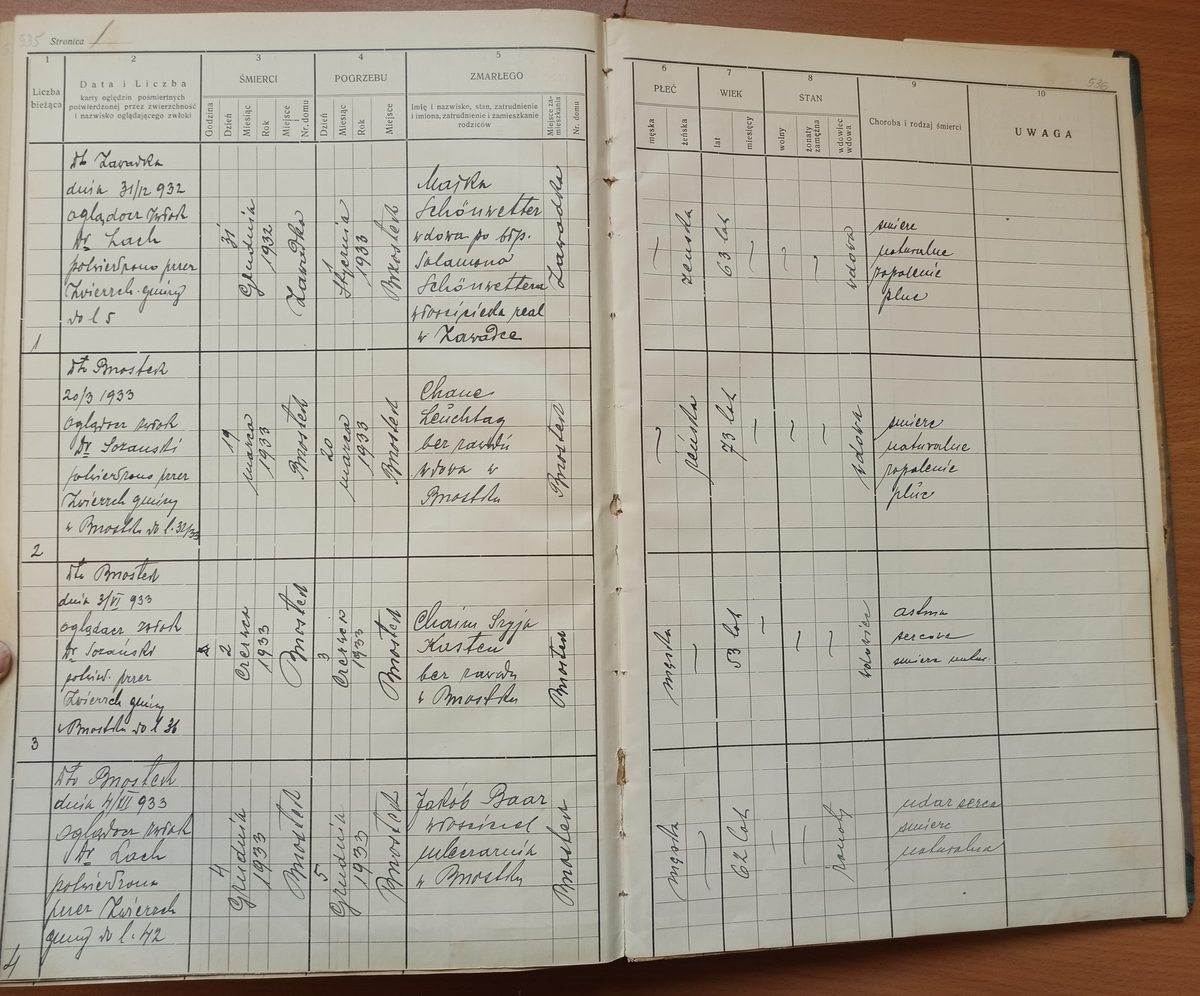 535 Stronica 1
1 2 3 4 5
Liczba bieżąca
Data i Liczba
karty oględzin pośmiertnych
potwierdzonej przez zwierzchność
i nazwisko oglądającego zwłoki
ŚMIERCI
Godzina
Dzień
Miesiąc
Rok
Miejsce
Nr. domu
POGRZEBU
Dzień
Miesiąc
Rok
Miejsce
ZMARŁEGO
Imię i nazwisko, stan, zatrudnienie
i imiona, zatrudnienie i zamieszkanie
rodziców
Miejsce zamieszkania
Nr. domu
536
6 7 8 9 10
PŁEĆ
męska
żeńska
WIEK
lat
miesięcy
STAN
wolny
żonaty
zamężna
wdowiec
wdowa
Choroba i rodzaj śmierci
UWAGA
1
dto Zawadka
dnia 31/12 932
oglądacz zwłok
Dr Lach
potwierdzono przez
Zwierzch. gminy
do l 5
31
Grudnia
1932
Zawadka
1
Stycznia
1933
Brzostek
Majka
Schönwetter
wdowa po błp.
Salamona
Schönwettera
właściciela real
w Zawadce
Zawadka
—
żeńska
63 lat
—
wdowa
śmierć
naturalne
zapolenie
płuc
2
dto Brzostek
20/3 1933
oglądacz zwłok
Dr Sozanski
potwierdzono przez
Zwierzch gminy
w Brzostku do l. 32/33
19
marca
1933
Brzostek
20
marca
1933
Brzostek
Chane
Leuchtag
bez zawodu
wdowa w
Brzostku
Brzostek
—
żeńska
73 lat
—
—
—
wdowa
śmierć
naturalne
zapolenie
płuc
3
dto Brzostek
dnia 3/VI 933
oglądacz zwłok
Dr Sozański
potwd. przez
Zwierzch gminy
w Brzostku do l 36
2
Czerwca
1933
Brzostek
3
Czerwca
1933
Brzostek
Chaim Szyja
Kasten
bez zawodu
w Brzostku
Brzostek
męska
—
53 lat
—
—
—
wdowiec
astma
sercowa
śmierć natur.
4
dto Brzostek
dnia 4/XII 933
oglądacz zwłok
Dr Lach
potwierdzona
przez Zwierzch
gminy do l. 42
4
Grudnia
1933
Brzostek
5
Grudnia
1933
Brzostek
Jakób Baar
właściciel
mleczarnia
w Brzostku
Brzostek
męska
—
62 lat
—
—
żonaty
udar serca
śmierć
naturalna